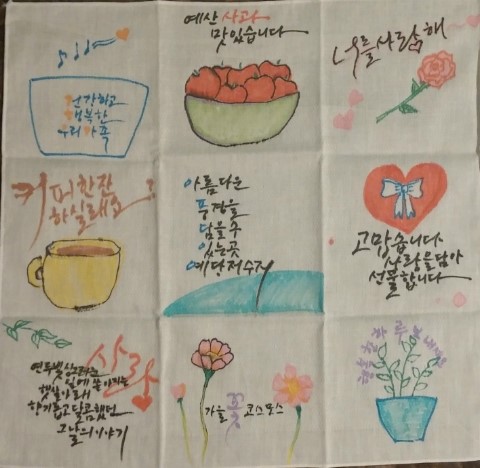 건강하고
행복한
우리가족
예산 사과
맛있습니다
너를 사랑해
커피한잔
하실래요?
아름다운
풍경을
담을수
있는곳
예당저수지
고맙습니다
사랑을담아
선물합니다
사랑
햇살아래
향기롭고달콤했던
그날의이야기
가을 꽃 코스모스